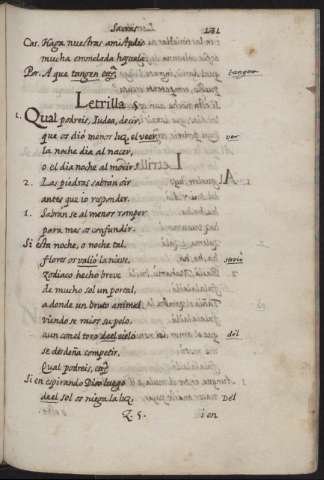 Sacras 141
Cas. Haga nuestras amistades
mucha enmelada hojuela
Por. A que tangen etc.
tangen
Letrilla 5.
1. Qual podreis, Iudea, decir,
que os dió menos luz, el veer
ver
la noche dia al nacer,
o el dia noche al morir?
2. Las piedras sabran oir
antes que io responder.
1. Sabran se al menor romper
para mas os confundir.
Si esta noche, o noche tal,
flores os valió la nieve,
seria
zodiaco hecho breve
de mucho sol un portal,
a donde un bruto animal
viendo se raios su pelo,
aun con el toro de el cielo
del
se desdeña competir.
Qual podreis, etc.
Si en espirando Dios luego
de el sol os niega la luz,
Del
Z. 5. i en